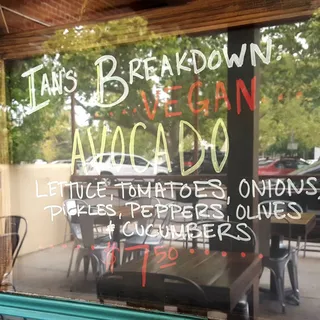 IANS BREAKDOWN:
VEGAN
AVOCADO
LETTUCE, TOMATOES, ONIONS,
PICKLES, PEPPERS, OLIVES
+ CUCUMBERS
7.50